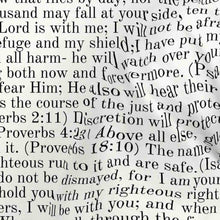 usand may fall at your side, ten
Lord is with me; I will not be afra
efuge and my shield; I have put my
all harm- he will watch over your
g both now and forevermore. (P
fear Him; He also will hear their
s the course of the just and prote
verbs 2:11) Discretion will protect
Proverbs 4:23) Above all else,
it. (Proverbs 18:10) The name
ghteous run to it and are safe. (Isa
do not be dismayed, for I am your
hold you with my righteous right
ers, I will be with you; and when